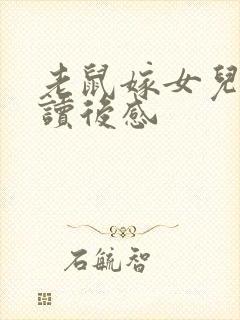 老鼠嫁女兒
讀後感
石毓智